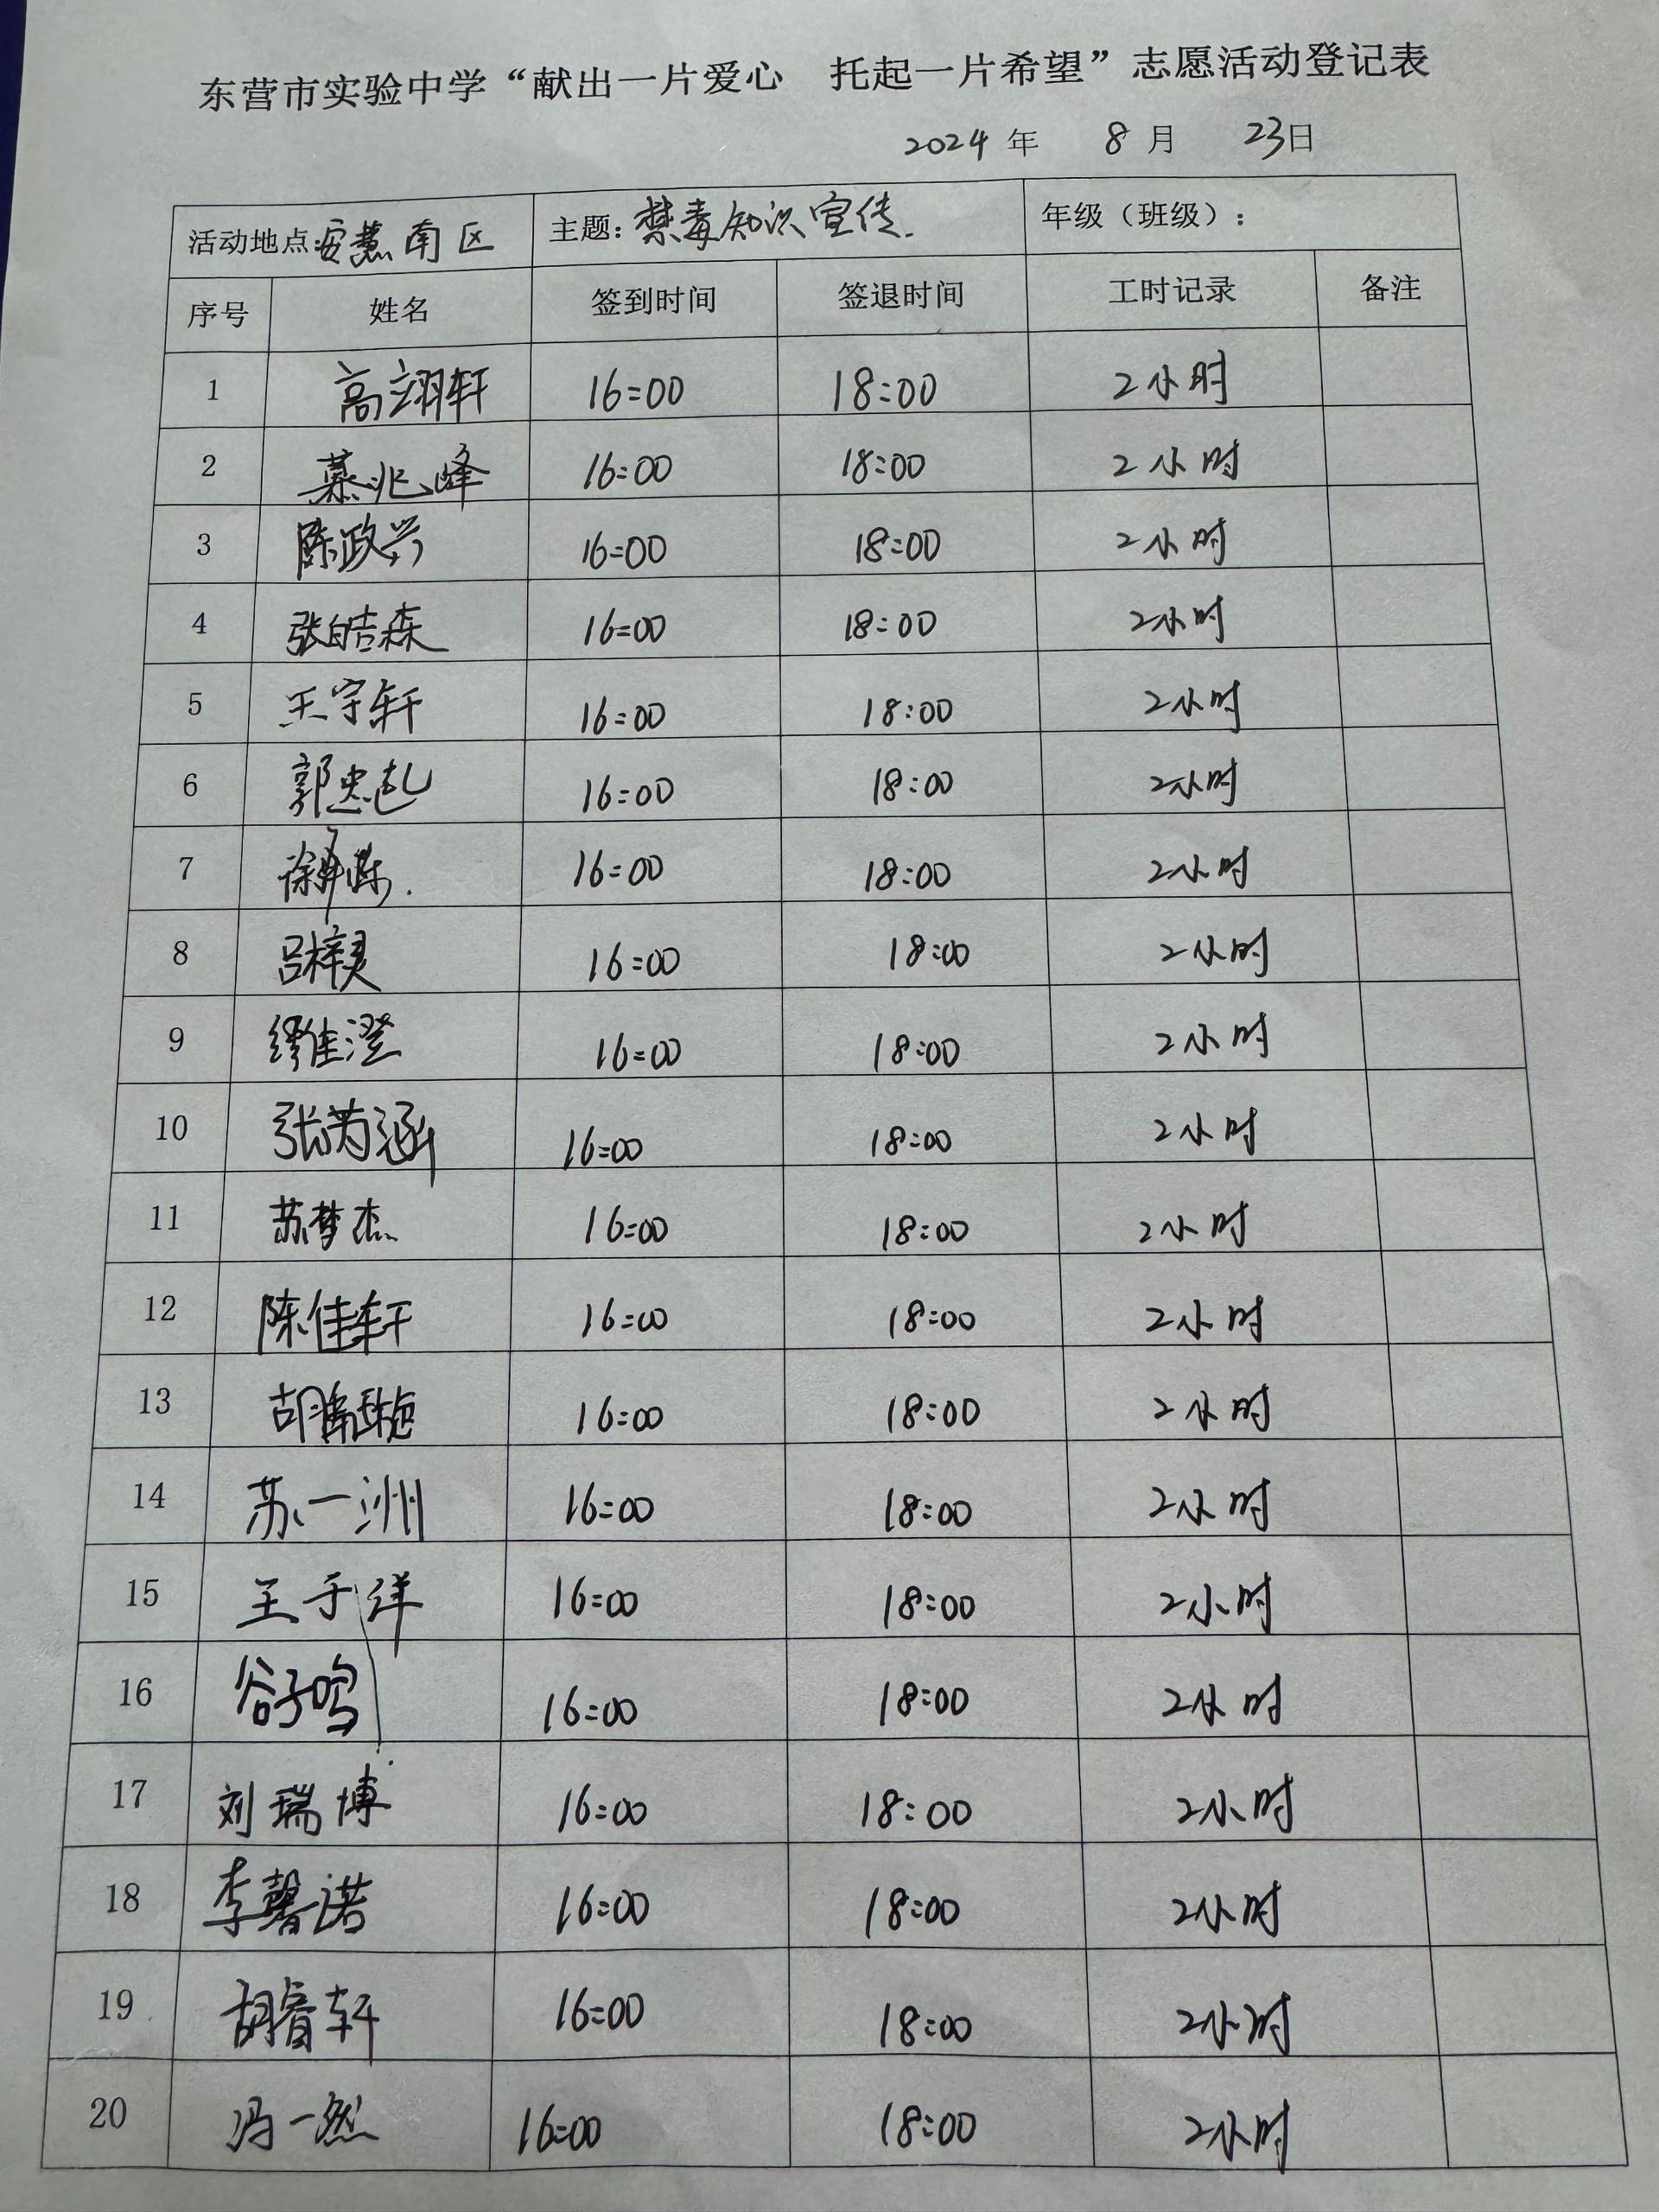 东营市实验中学“献出一片爱心 托起一片希望”志愿活动登记表
2024 年 8 月 23日
活动地点安慧南区 主题:禁毒知识宣传. 年级（班级）:
序号 姓名 签到时间 签退时间 工时记录 备注
1 高翊轩 16:00 18:00 2小时
2 慕兆峰 16:00 18:00 2小时
3 陈政兴 16:00 18:00 2小时
4 张皓森 16:00 18:00 2小时
5 王宇轩 16:00 18:00 2小时
6 郭忠 16:00 18:00 2小时
7 徐 16:00 18:00 2小时
8 吕梓灵 16:00 18:00 2小时
9 缪佳澄 16:00 18:00 2小时
10 张芮涵 16:00 18:00 2小时
11 苏梦杰 16:00 18:00 2小时
12 陈佳轩 16:00 18:00 2小时
13 胡 16:00 18:00 2小时
14 苏一洲 16:00 18:00 2小时
15 王于洋 16:00 18:00 2小时
16 谷子鸣 16:00 18:00 2小时
17 刘瑞博 16:00 18:00 2小时
18 李馨诺 16:00 18:00 2小时
19 胡睿轩 16:00 18:00 2小时
20 冯一然 16:00 18:00 2小时